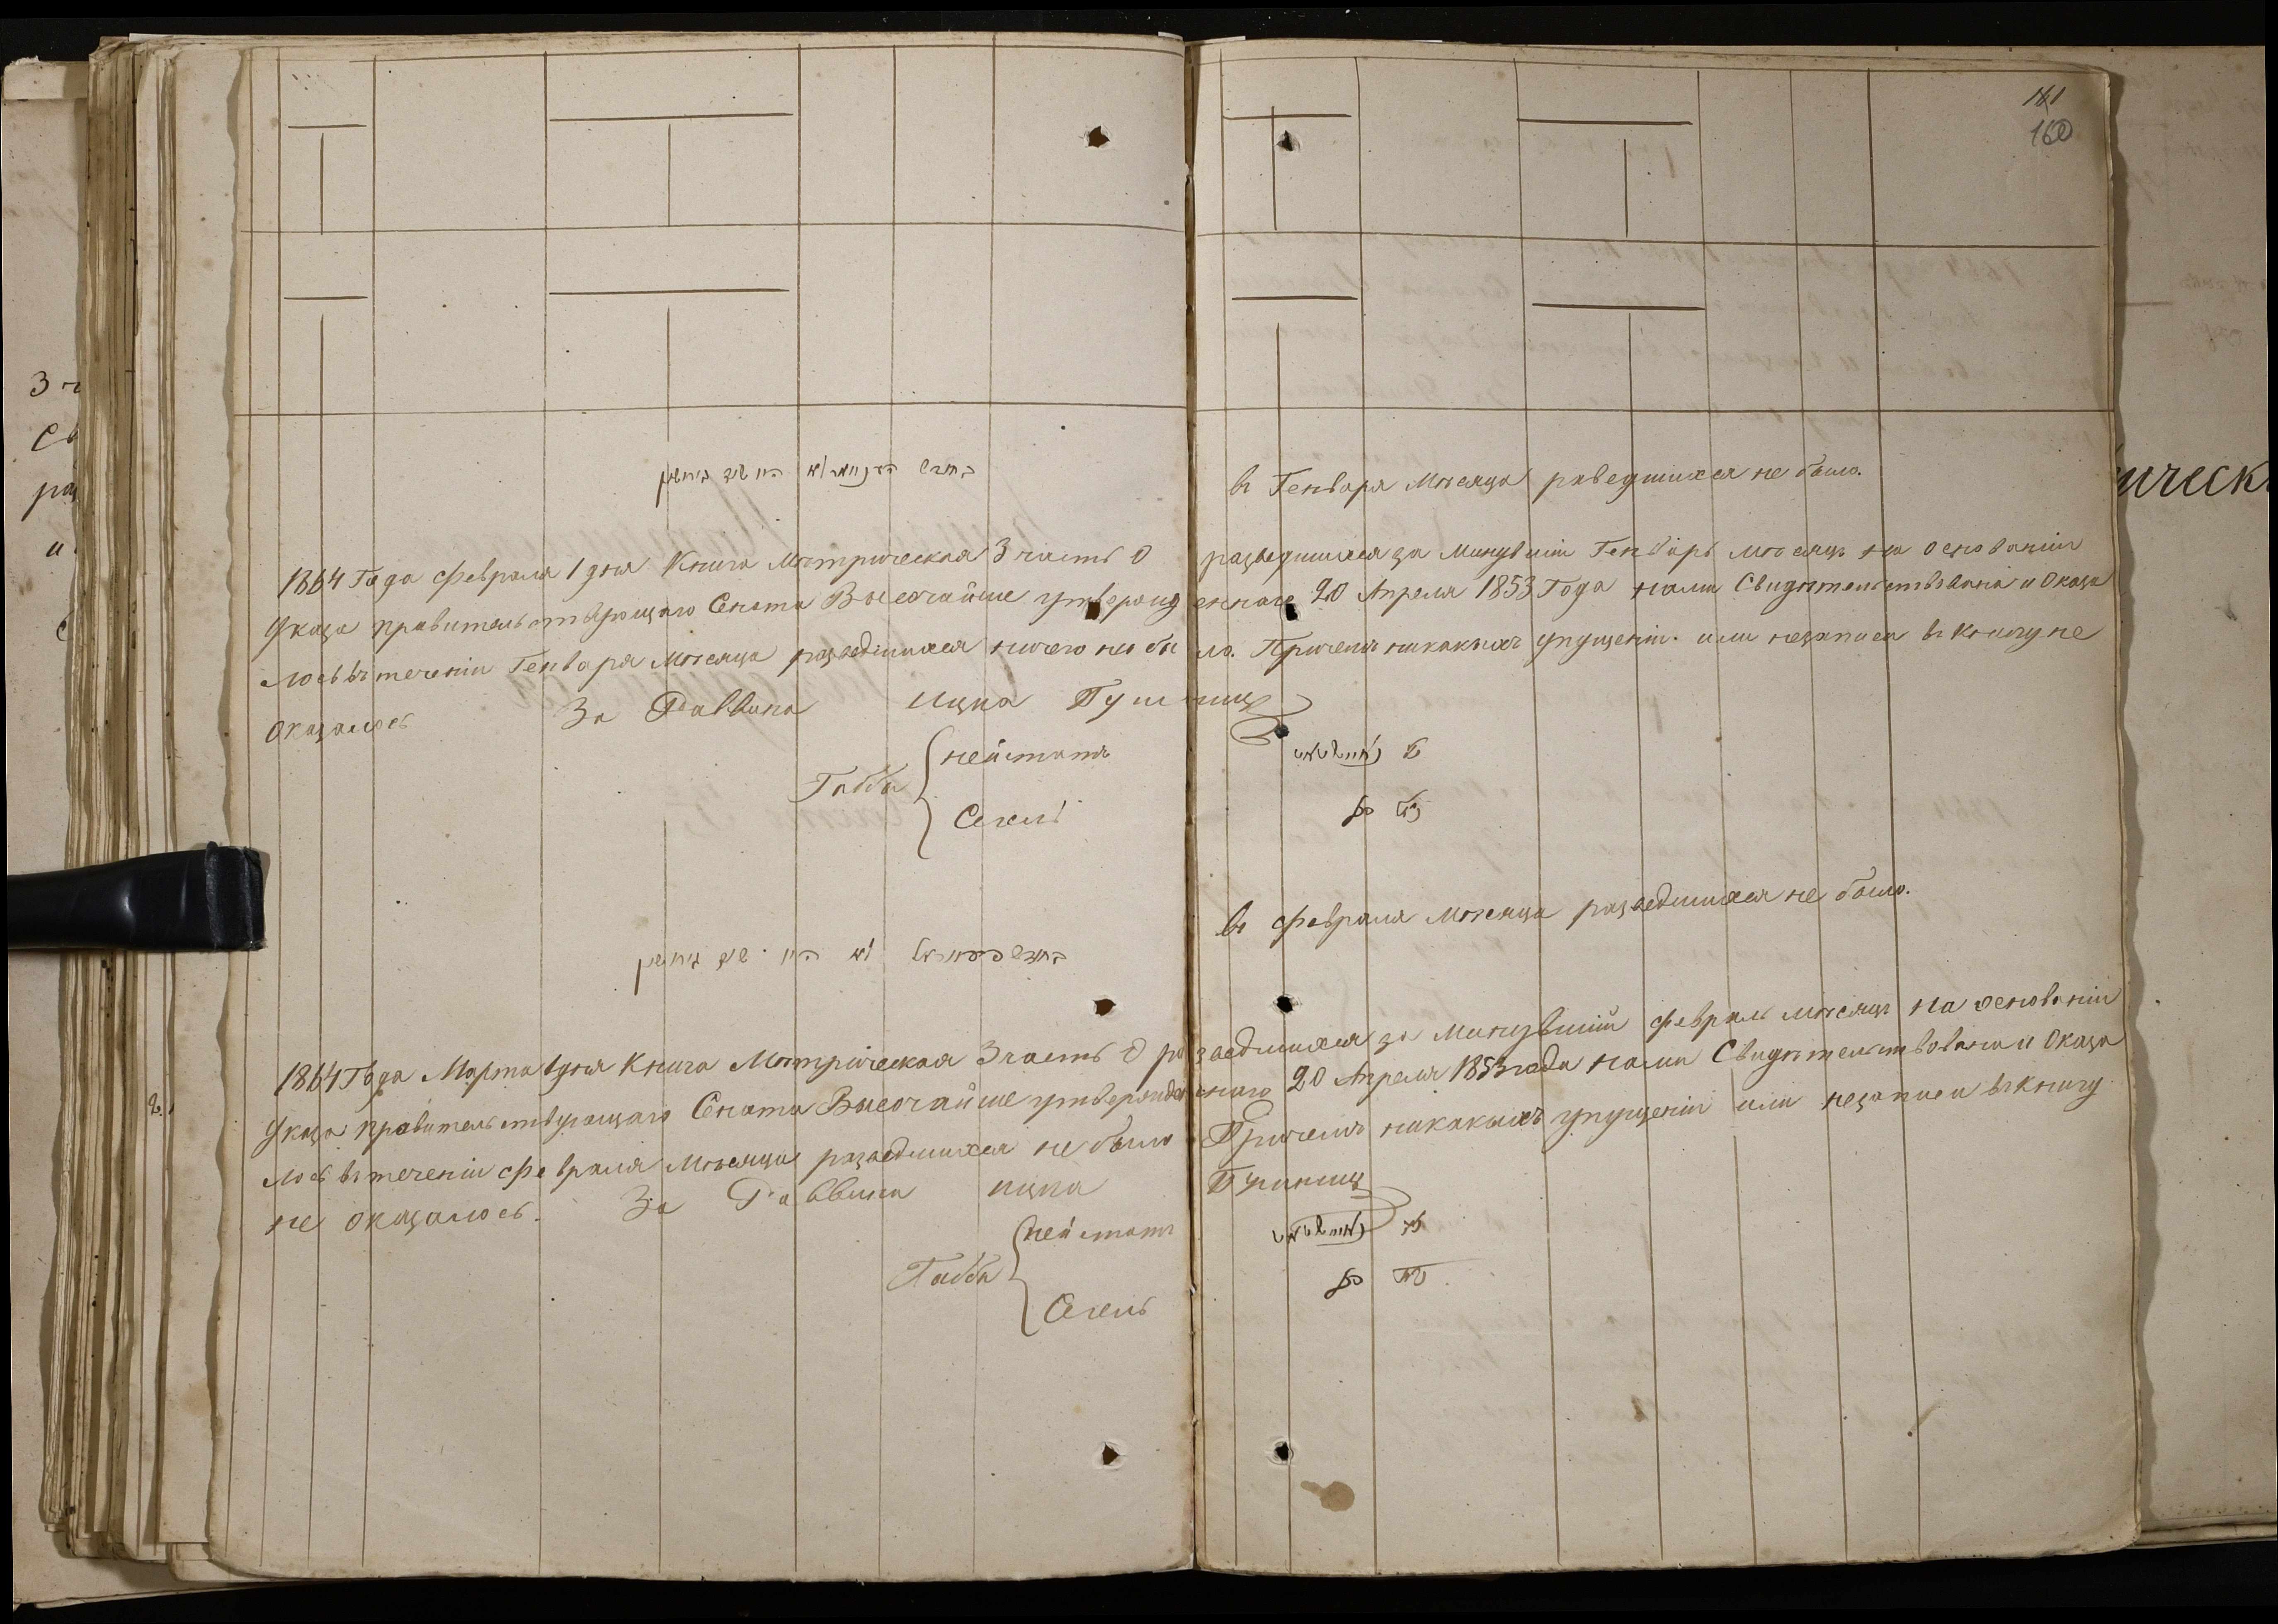 161
160
בחדש יאנוואר לא היו שום גירושין
въ Генваря Мѣсяца разведшихся не было.
1864 Года февраля 1 дня Книга Метрическая 3 часть О разведшихся за Минувшій Генварь мѣсяцъ на основаніи
Указа правительствующаго Сената Высочайше утвержденнаго 20 Апреля 1853 Года нами Свидѣтельствована и Оказа
лось въ теченіи Генваря Мѣсяца разведшихся ничего не было. Причемъ никакихъ упущеній или незаписи въ Книгу не
Оказалось За Раввина Ицка
Габба нейштатъ
Сегель
בחדש לא היו שום גירושין
въ февраля мѣсяца разведшихся не было.
1864 Года Марта 1 дня Книга Метрическая 3 часть О разведшихся за Минувшій февраль мѣсяцъ на основаніи
Указа правительствующаго Сената Высочайше утвержденнаго 20 Апреля 1853 года нами Свидѣтельствована и Оказа
лось въ теченіи февраля Мѣсяца разведшихся не было Причемъ никакихъ упущеній или незаписи въ Книгу
не оказалось. За Раввина ицка
Габба нейштатъ
Сегель